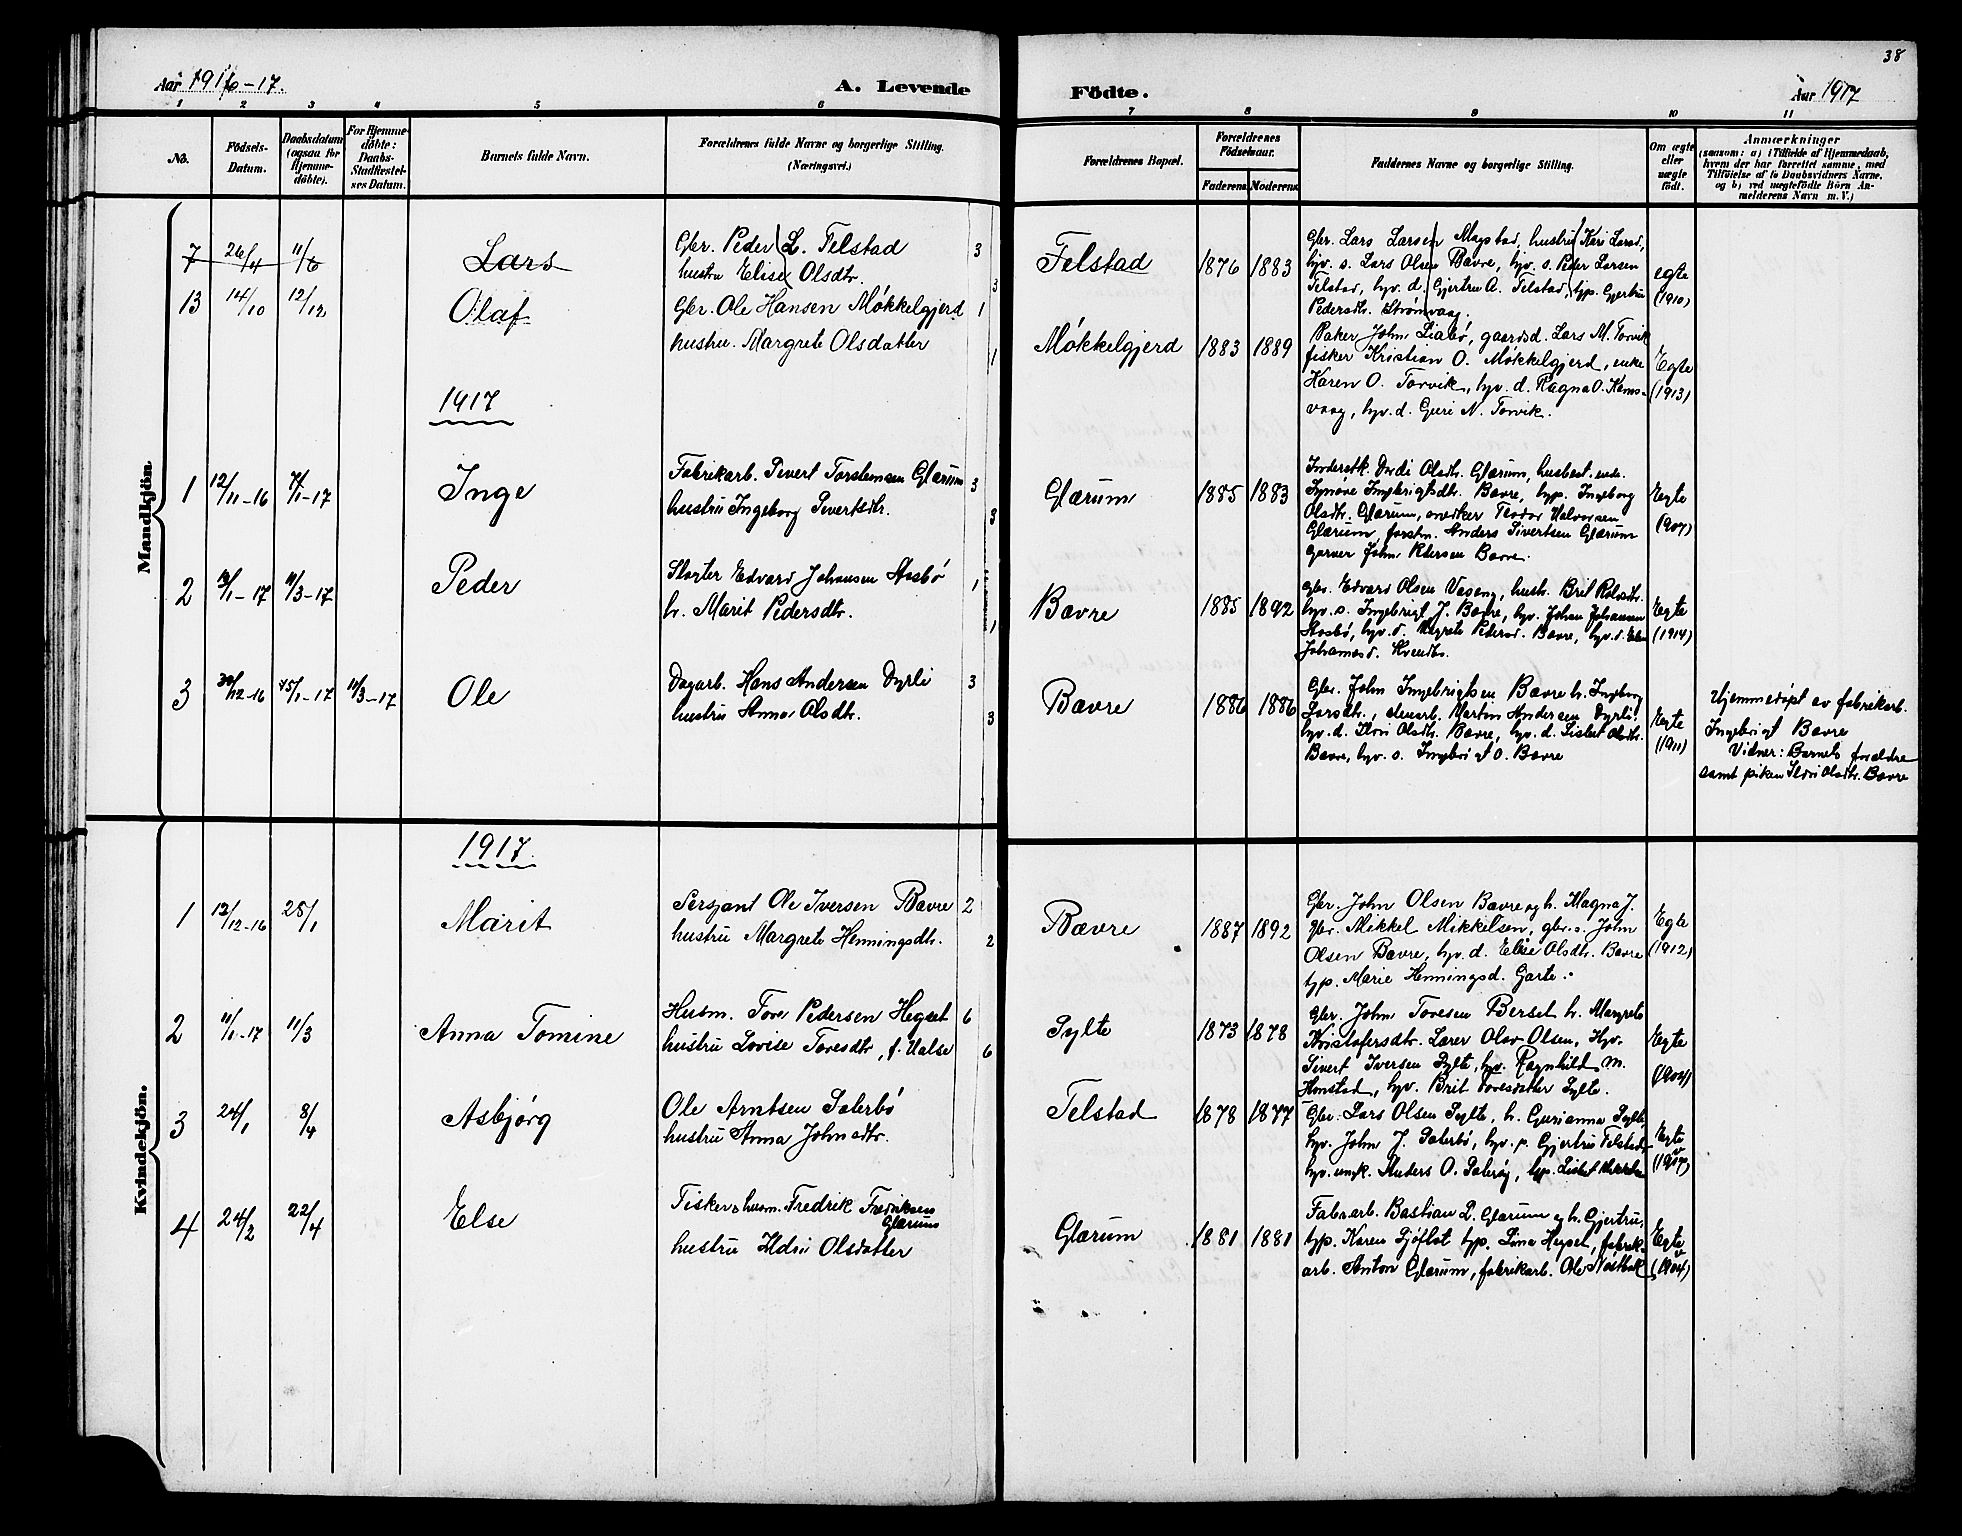 38
Aar 1916-17.
A. Levende
Födte.
Aar 1917
1 2 3 4 5 6
7 8 9 10 11
No.
Födsels-
Datum.
Daabsdatum
(ogsaa for
Hjemme-
döbte).
For Hjemme-
döbte:
Daabs-
Stadfæstel-
ses Datum.
Barnets fulde Navn.
Forældrenes fulde Navne og borgerlige Stilling.
(Næringsvei.)
Forældrenes Bopæl.
Forældrenes
Födselsaar.
Faderens
Moderens
Faddernes Navne og borgerlige Stilling.
Om ægte
eller
uægte
födt.
Anmærkninger
(saasom: a) i Tilfælde af Hjemmedaab,
hvem der har forrettet samme, med
Tilföielse af to Daabsvidners Navne,
og b) ved uægtefödte Börn An-
melderens Navn m. V.)
Mandkjön.
7 26/4 11/6 Lars
Gbr. Peder L. Telstad 3
hustru Elise Olsdtr. 3
Telstad 1876 1883
Gbr. Lars Larsen Magstad, hustru Kari Larsd,
hjv. s. Lars Olsen Bævre, hjv. s. Peder Larsen
Telstad, hjv. d. Gjertru A. Telstad, tjp. Gjertru
Pedersdtr. Strømsvaag.
egte
(1910)
13 14/10 12/12 Olaf
Gbr. Ole Hansen Møkkelgjerd 1
hustru. Margrete Olsdatter 1
Møkkelgjerd 1883 1889
Baker John Liabø, gaardsd. Lars M. Torvik
fisker Kristian O. Møkkelgjerd, enke
Karen O. Torvik, hjv. d. Ragna O. Kams-
vaag, hjv. d. Guri N. Torvik.
Egte
(1913)
1917
1 12/11-16 7/1-17 Inge
Fabrikarb. Sivert Torstensen Glærum 3
hustru Ingeborg Sivertsdtr. 3
Glærum 1885 1883
Inderstk. Dordi Olsdtr. Glærum, husbest. enke.
Synøve Ingebrigtsdtr. Bævre, tjp. Ingeborg
Olsdtr. Glærum, snedker Teodor Halvorsen
Glærum, forstm. Anders Sivertsen Glærum
garver John Petersen Bævre.
Egte
(1907)
2 /1-17 11/3-17 Peder
Slagter Edvard Johansen Aasbø 1
h. Marit Pedersdtr. 1
Bævre 1885 1892
gbr. Edvard Olsen Vaseng, hustr. Brit
hjv. s. Ingebrigt J. Bævre, hjv. Johan Johansen
Aasbø, hjv. d. Margrete Pedersd. Bævre, hjv. d.
Johannesd.
Egte
(1914)
3 30/12-16 /1-17 11/3-17 Ole
Dagarb. Hans Andersen Dyrli 3
hustru Anna Olsdtr. 3
Bævre 1886 1886
Gbr. John Ingebrigtsen Bævre h. Ingeborg
Larsdtr., Martin Andersen Dyrli.
hjv. d. Ildri Olsdtr. Bævre, hjv. d. Lisbet Olsdtr.
Bævre, hjv. s. Ingebrigt O. Bævre
Egte
(1911)
Hjemmedøpt av fabrikarb.
Ingebrigt Bævre
Vidner: Barnets forældre
samt piken Ildri Olsdtr. Bævre
Kvindekjön.
1917.
1 12/12-16 28/1 Marit
Sersjant Ole Iversen Bævre 2
hustru Margrete Henningsdtr. 2
Bævre 1887 1892
Gbr. John Olsen Bævre og h. Magna J.
gbr. Mikkel Mikkelsen, gbr. s. John
Olsen Bævre, hjv. d. Elise Olsdtr. Bævre
tjp. Marie Henningsd. Garte.
Egte
(1912)
2 11/1-17 11/3 Anna Tomine
Husm. Tore Pedersen Hegset 6
hustru Lovise Toresdtr, f. Halse 6
Sylte 1873 1878
Gbr. John Toresen Berset h. Margrete
Kristofersdtr. Lærer Olav Olsen, Hjv.
Sivert Iversen Sylte, hjv. Ragnhild M.
Honstad, hjv. Brit Toresdatter Sylte.
Egte
(1904)
3 24/1 8/4 Asbjørg
Ole Arntsen Saterbø
hustru Anna Johnsdtr.
Telstad 1878 1877
Gbr. Lars Olsen Sylte, h. Gurianna Sylte,
hjv. John J. Saterbø, hjv. p. Gjertru Telstad,
hjv. Anders O. tjp. Lisbet
Egte
4 24/2 22/4 Else
Fisker & husm. Fredrik Fredriksen
Glærum
hustru Ildri Olsdatter
Glærum 1881 1881
Fabrarb. Bastian L. Glærum og h. Gjertru,
tjp. Karen Sjøflot tjp. Lina Hegset, fabrik-
arb. Anton Glærum, fabrikarb. Ole
Egte
(1904)